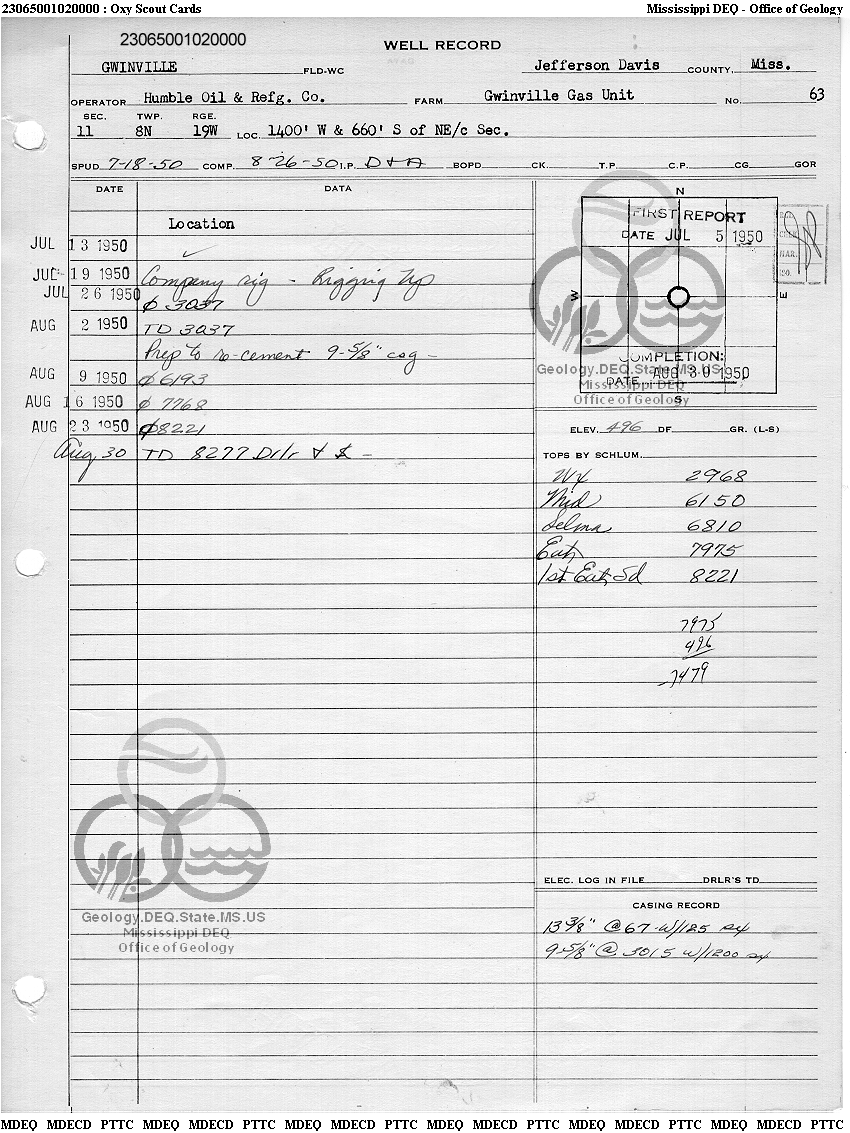 23065001020000 : Oxy Scout Cards Mississippi DEQ - Office of Geology
23065001020000
WELL RECORD
GWINVILLE FLD-WC Jefferson Davis COUNTY, Miss.
OPERATOR Humble Oil & Refg. Co. FARM Gwinville Gas Unit NO. 63
SEC. TWP. RGE.
11 8N 19W LOC. 1400' W & 660' S of NE/c Sec.
SPUD 7-18-50 COMP. 8-26-50 I.P. D & A BOPD CK. T.P. C.P. CG. GOR
DATE DATA
Location
JUL 13 1950
JUL 19 1950 Company rig - Rigging Up
JUL 26 1950 Ø 3037
AUG 2 1950 TD 3037
Prep to re-cement 9-5/8" csg -
AUG 9 1950 Ø 6193
AUG 16 1950 Ø 7768
AUG 23 1950 Ø 8221
Aug 30 TD 8277 Drlr
N
FIRST REPORT
DATE JUL 5 1950
W E
COMPLETION:
DATE AUG 30 1950
S
Geology.DEQ.State.MS.US
Mississippi DEQ
Office of Geology
ELEV. 496 DF. GR. (L-S)
TOPS BY SCHLUM.
Wx 2968
Mid 6150
Selma 6810
Eut 7975
1st Eut Sd 8221
7975
496
-7479
ELEC. LOG IN FILE DRLR'S TD
CASING RECORD
13 3/8" @ 67 W/125 sx
9-5/8" @ 3015 W/1200 sx
Geology.DEQ.State.MS.US
Mississippi DEQ
Office of Geology
MDEQ MDECD PTTC MDEQ MDECD PTTC MDEQ MDECD PTTC MDEQ MDECD PTTC MDEQ MDECD PTTC MDEQ MDECD PTTC